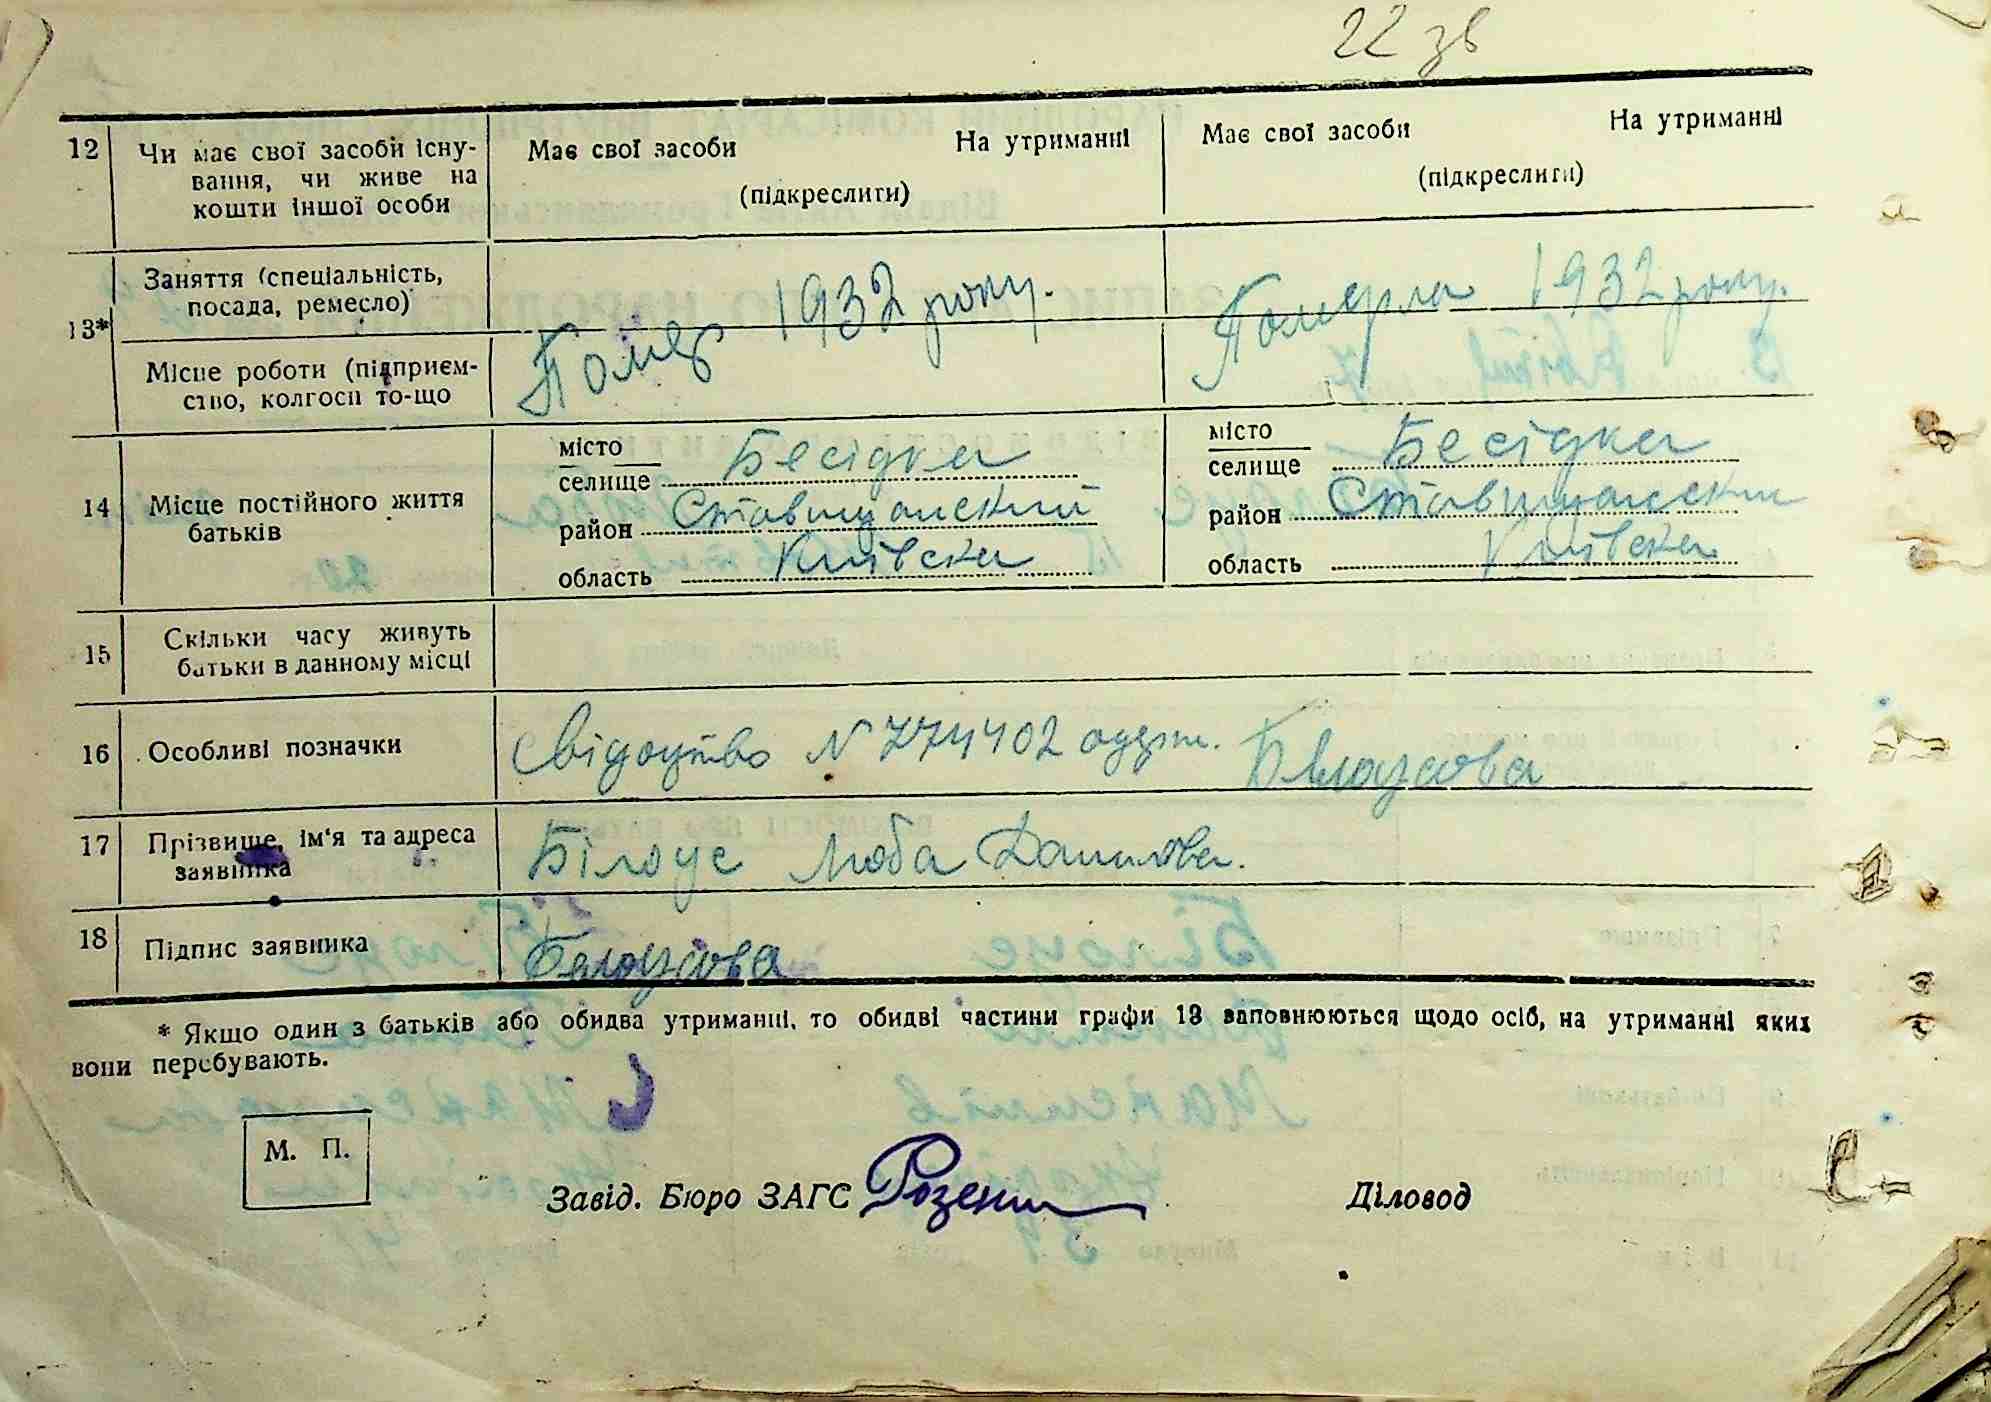 22 зв
12 Чи має свої засоби існу- Має свої засоби На утриманні Має свої засоби На утриманні
вання, чи живе на (підкреслити) (підкреслити)
кошти іншої особи
13* Заняття (спеціальність,
посада, ремесло) Помер 1932 року. Померла 1932 року.
Місце роботи (підприєм-
ство, колгосп то-що
14 Місце постійного життя
батьків
місто
селище Бесідка
район Ставищанский
область Київска
місто
селище Бесідка
район Ставищанский
область Київска
15 Скільки часу живуть
батьки в данному місці
16 Особливі позначки Свідоцтво N 774402 одерж. Білоусова
17 Прізвище, ім'я та адреса Білоус Люба Данилова.
заявника
18 Підпис заявника Белоусова
* Якщо один з батьків або обидва утриманні, то обидві частини графи 13 заповнюються щодо осіб, на утриманні яких
вони перебувають.
М. П.
Завід. Бюро ЗАГС Діловод